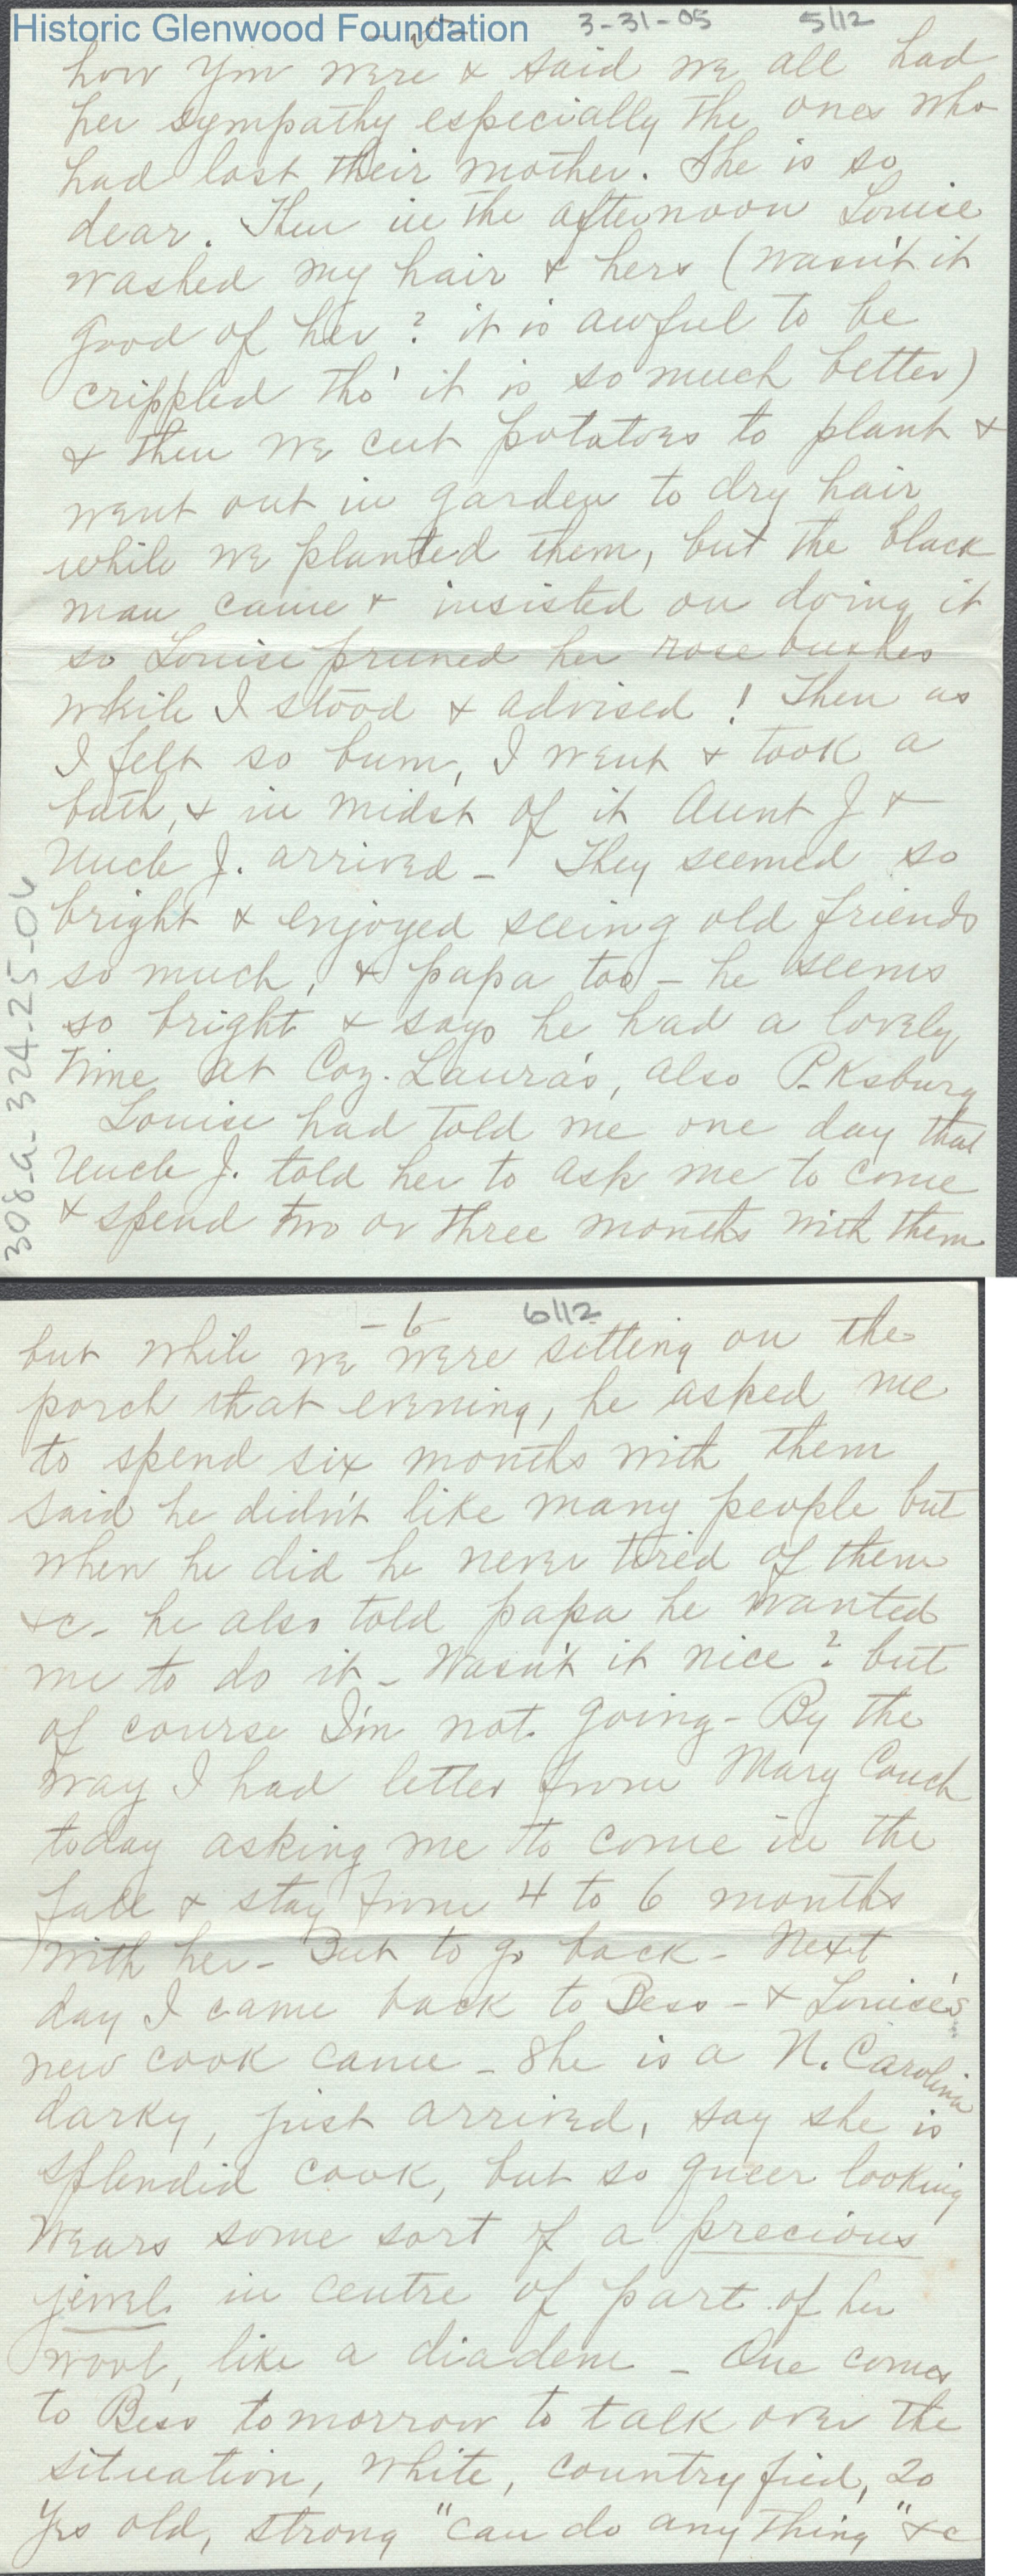 Historic Glenwood Foundation
3-31-05
5/12
how you were & said we all had
her sympathy especially the ones who
had lost their mother. She is so
dear. Then in the afternoon Louise
washed my hair & hers (wasn't it
good of her? it is awful to be
crippled tho' it is so much better)
& then we cut potatoes to plant &
went out in garden to dry hair
while we planted them, but the black
man came & insisted on doing it
so Louise pruned her rose bushes
while I stood & advised! Then as
I felt so bum, I went & took a
bath, & in midst of it Aunt J &
Uncle J. arrived - They seemed so
bright & enjoyed seeing old friends
so much, & papa too - he seems
so bright & says he had a lovely
time at Coz. Laura's, also P.Ksburg
Louise had told me one day that
Uncle J. told her to ask me to come
& spend two or three months with them
308-a-324-25-06
-6-
6/12
but while we were sitting on the
porch that evening, he asked me
to spend six months with them
said he didn't like many people but
when he did he never tired of them
&c - he also told papa he wanted
me to do it - Wasn't it nice? but
of course I'm not going - By the
way I had letter from Mary Couch
today asking me to come in the
fall & stay from 4 to 6 months
with her - But to go back - Next
day I came back to Bess - & Louise's
new cook came - She is a N. Carolina
darky, just arrived, say she is
splendid cook, but so queer looking
Wears some sort of a precious
jewel in centre of part of her
wool, like a diadem - One comes
to Bess tomorrow to talk over the
situation, white, countryfied, 20
yrs old, strong "can do any thing" &c